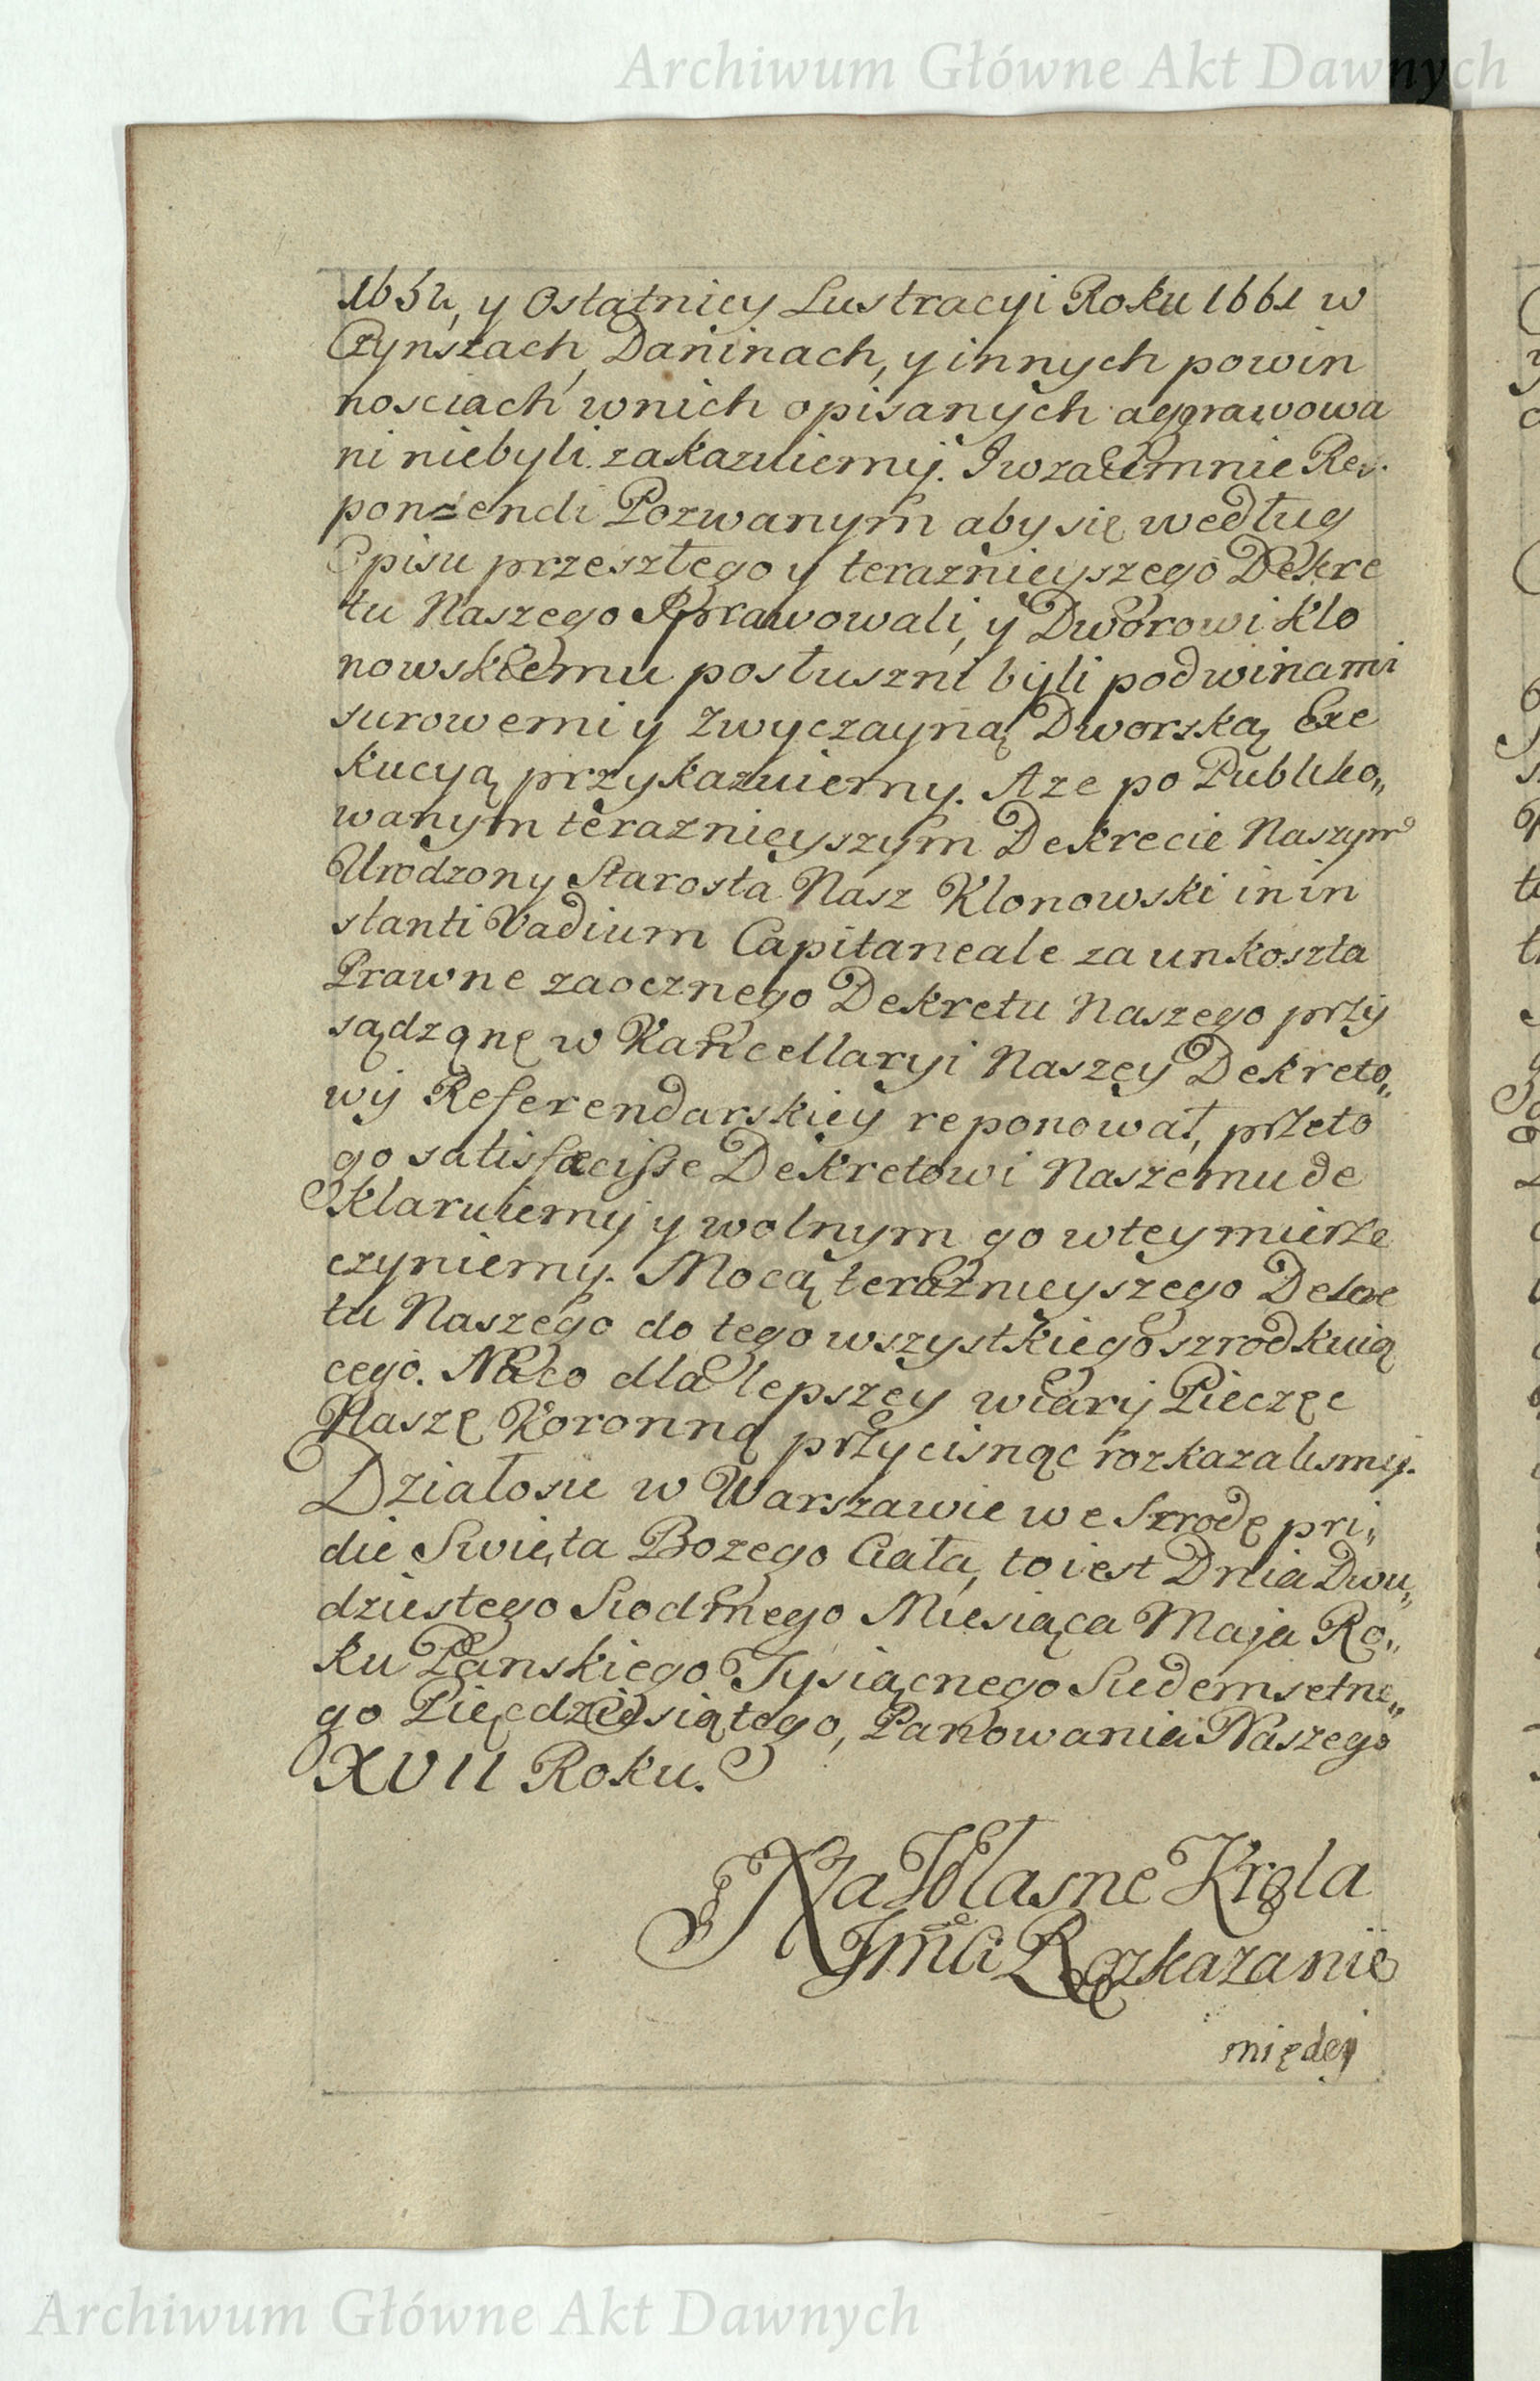 Archiwum Główne Akt Dawnych
1632, y Ostatniey Lustracyi Roku 1661 w
Czynszach, Daninach, y innych powin
nosciach wnich opisanych aggrawowa
ni niebyli zakazuiemy. I wzaiemnie Res
pondendi Pozwanym aby się według
Opisu przeszłego y teraznieyszego Dekre
tu Naszego Sprawowali, y Dworowi Klo
nowskiemu posłuszni byli pod winami
surowemi y zwyczayną Dworską Exe
kucyą przykazuiemy. Aze po Publiko„
wanym teraznieyszym Dekrecie Naszym
Urodzony Starosta Nasz Klonowski in in
stanti Vadium Capitaneale za unkoszta
Prawne zaocznego Dekretu Naszego przy
sądzonę w Kancellaryi Naszey Dekreto„
wy Referendarskiey reponował, przeto
go satisfecisse Dekretowi Naszemu de
klaruiemy y wolnym go wtey mierze
czyniemy. Mocą teraznieyszego Dekre
tu Naszego do tego wszystkiego szrodkuią
cego. Naco dla lepszey wiary Pieczęc
Naszę Koronną przycisnąc rozkazalismy.
Działosie w Warszawie we Szrodę pri„
die Swięta Bozego Ciała, to iest Dnia Dwu„
dziestego Siodmego Miesiąca Maja Ro„
ku Panskiego Tysiącnego Siedemsetne„
go Pięcdziesiątego, Panowania Naszego
XVII Roku.
Na Własne Krola
Jmci Rozkazanie
między
Archiwum Główne Akt Dawnych